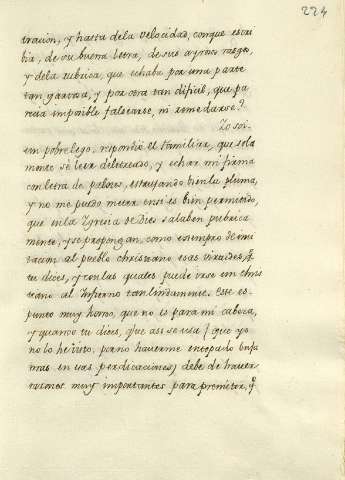 224
tracion, y hasta dela velocidad, conque escri
bia, de su buena letra, de sus ayrosos rasgos,
y dela rubrica, que echaba por una parte
tan garvosa, y por otra tan dificil, que pa
recia imposible falsearse, ni remedarse?
Yo soi
un pobre lego, respondió el familiar, que sola
mente sé leer deletreado, y echar mi firma
con letra de palotes, estrujando bien la pluma,
y no me puedo meter en si es bien permitido,
que en la Iglesia de Dios se alaben publica
mente, y se propongan, como exemplo de imi
tacion al pueblo christiano esas virtudes, q.
tu dices, y con las quales puede irse un chris
tiano al Infierno tan lindamente. Este es
punto muy hondo, que no es para mi cabeza,
y quando tu dices, que asi se usa (que yo
no lo he visto, por no haverme
mas en las predicaciones) debe de haver
razones muy importantes para premitir, q.